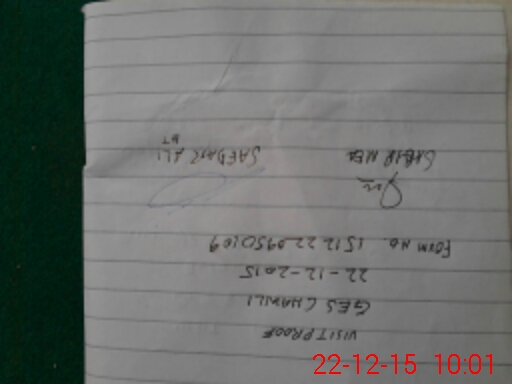 VISIT PROOF
GES
22-12-2015
FORM NO. 1512220950109
SABIR SAFDAR ALI
HT
22-12-15 10:01